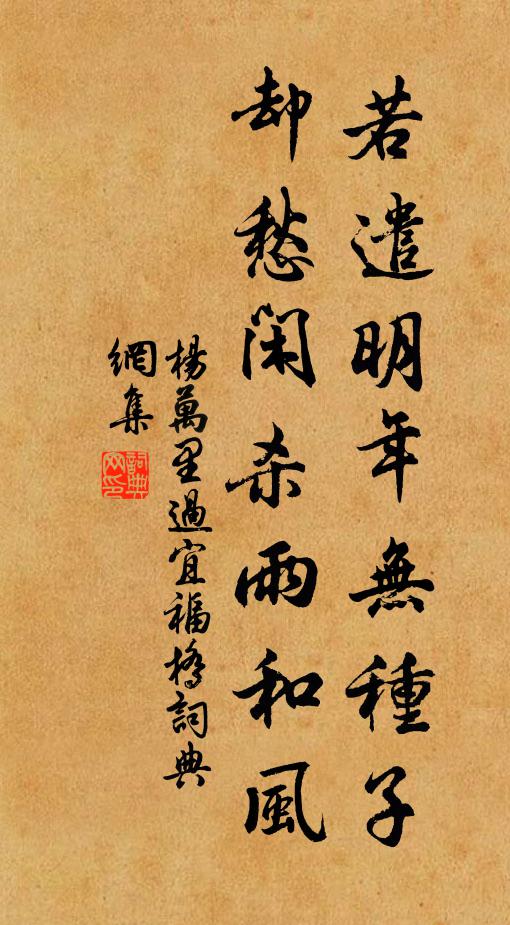 若遣明年無種子
却愁閑杀雨和風
楊萬里過宜福橋詞典
網集
詞典
网印